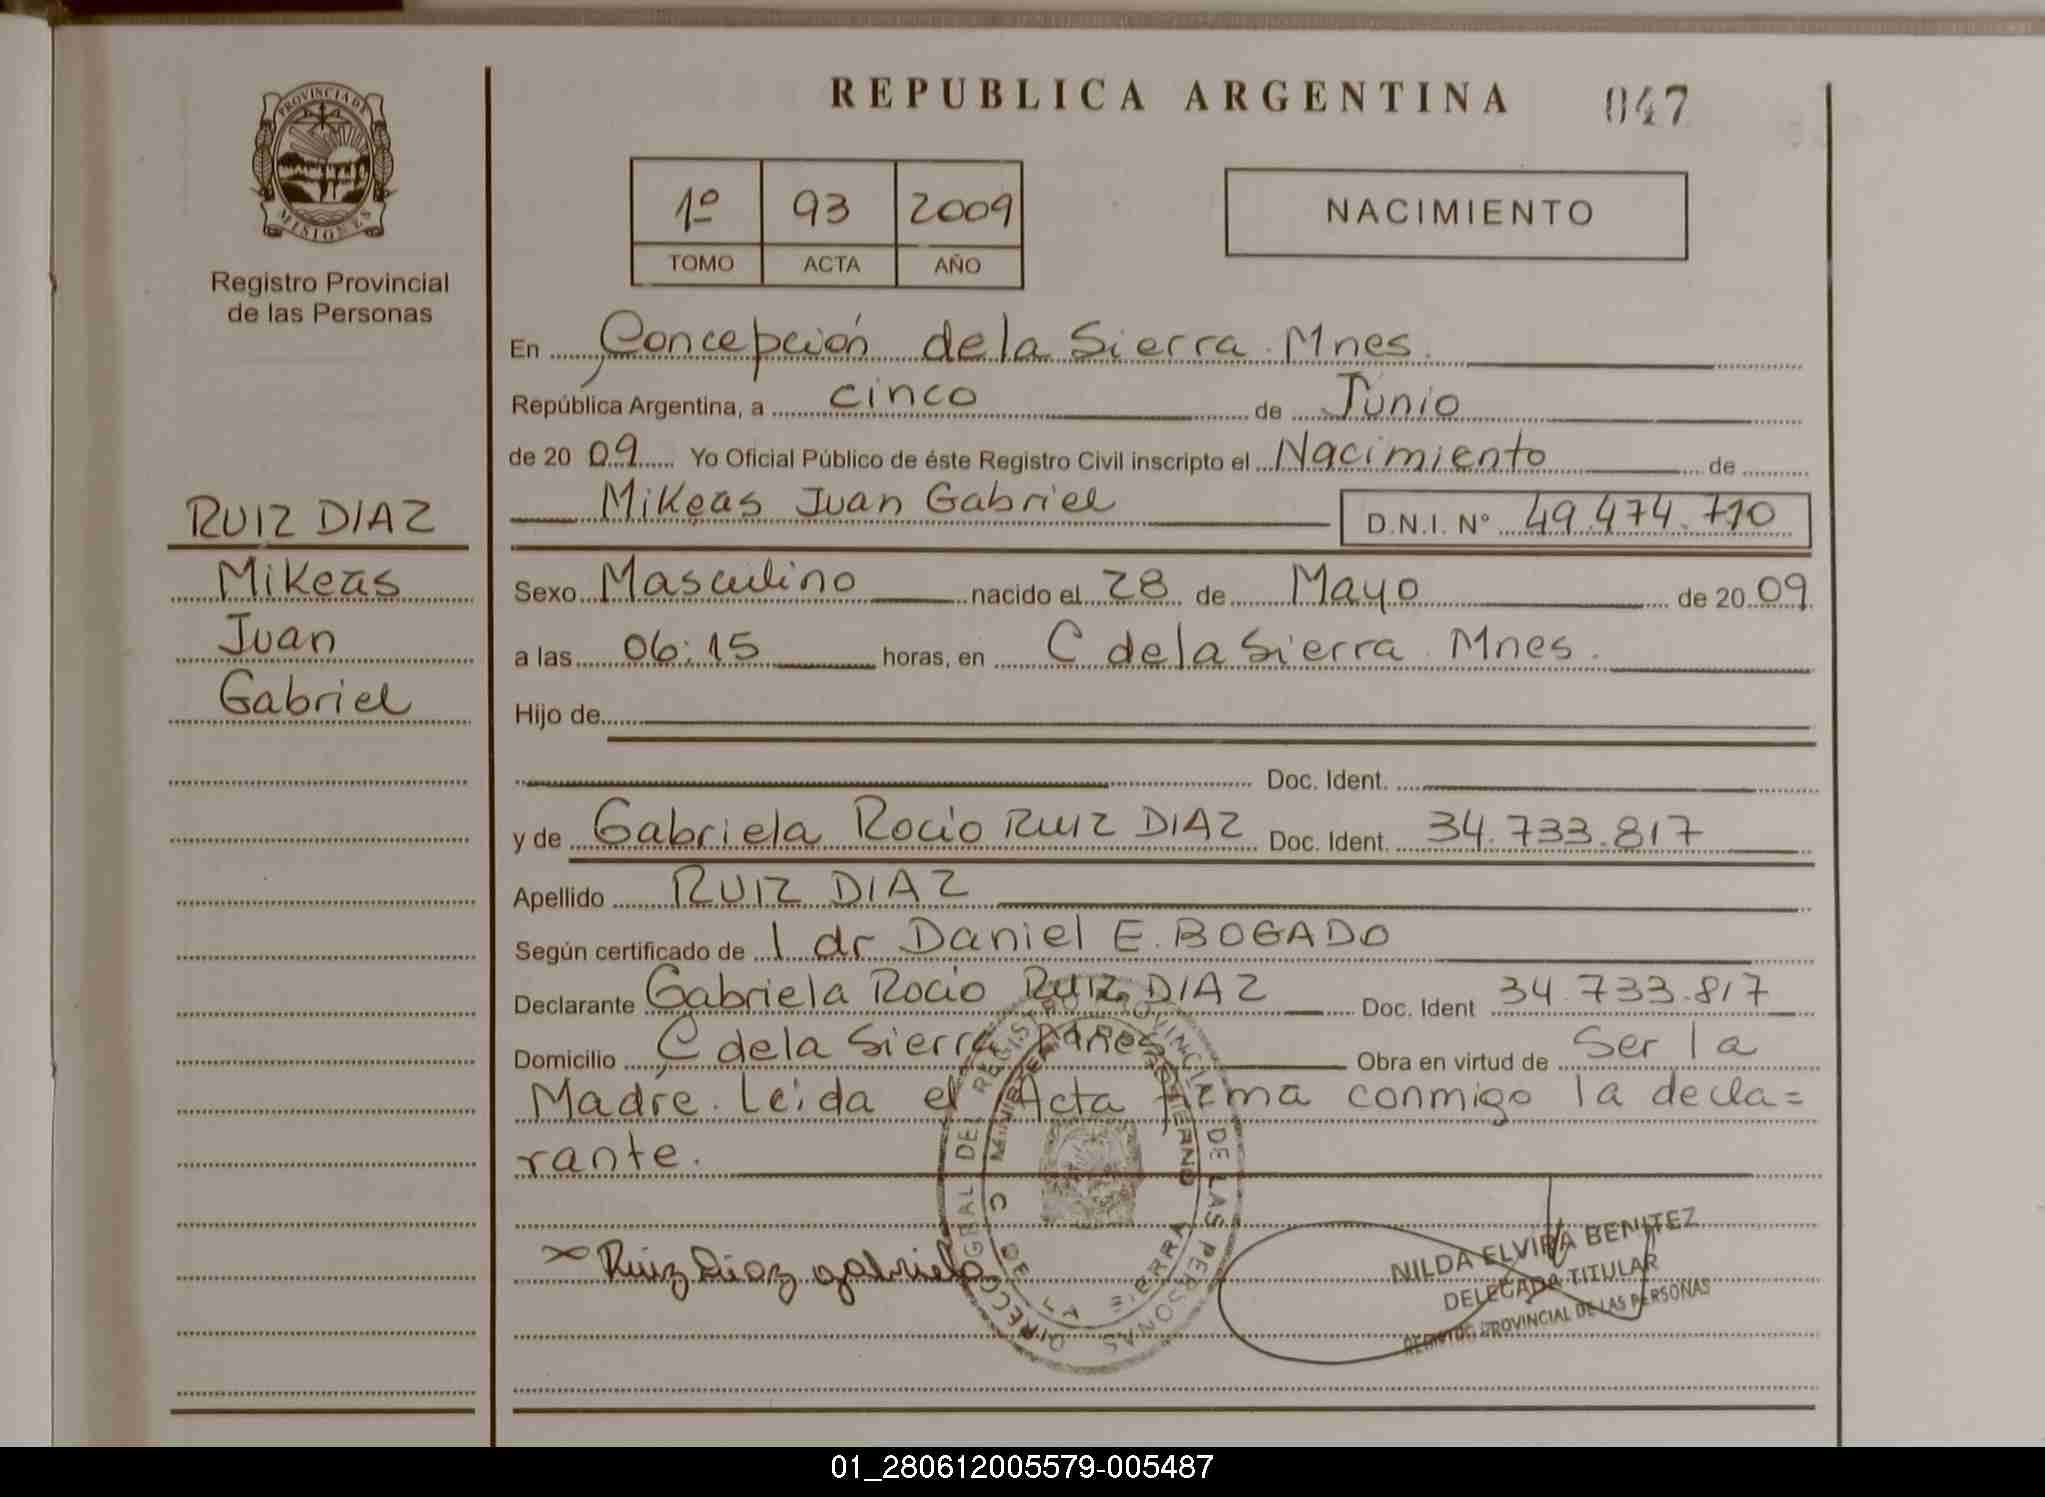 REPUBLICA ARGENTINA
047
PROVINCIA DE
MISIONES
Registro Provincial
de las Personas
1º 93 2009
TOMO ACTA AÑO
NACIMIENTO
En Concepción de la Sierra. Mnes.
República Argentina, a cinco de Junio
de 2009 Yo Oficial Público de éste Registro Civil inscripto el Nacimiento de
Mikeas Juan Gabriel D.N.I. Nº 49.474.710
RUIZ DIAZ
Mikeas
Juan
Gabriel
Sexo Masculino nacido el 28 de Mayo de 2009
a las 06:15 horas, en C de la Sierra. Mnes.
Hijo de
Doc. Ident.
y de Gabriela Rocio RUIZ DIAZ Doc. Ident. 34.733.817
Apellido RUIZ DIAZ
Según certificado de l dr Daniel E. BOGADO
Declarante Gabriela Rocio RUIZ DIAZ Doc. Ident 34.733.817
Domicilio C de la Sierra Mnes Obra en virtud de Ser la
Madre. Leida el Acta firma conmigo la decla=
rante.
x Ruiz Diaz gabriela
DIRECC GRAL DEL REGISTRO PROVINCIAL DE LAS PERSONAS
MINISTERIO DE GOBIERNO
C DE LA SIERRA
NILDA ELVIRA BENITEZ
DELEGADA TITULAR
REGISTRO PROVINCIAL DE LAS PERSONAS
01_280612005579-005487